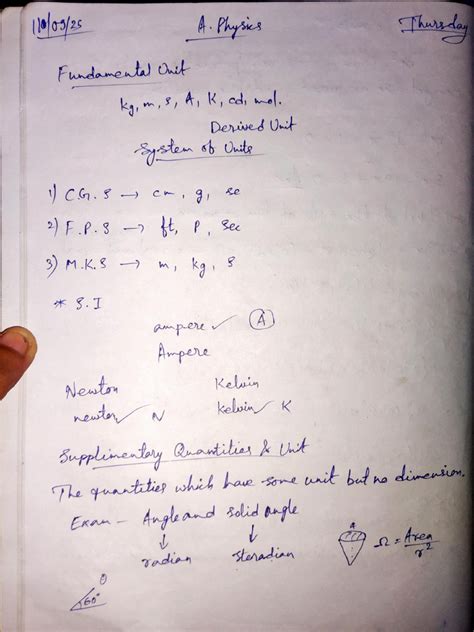 11/09/25 A. Physics Thursday
Fundamental Unit
kg, m, s, A, K, cd, mol.
Derived Unit
System of Units
1) C.G.S → cm, g, se
2) F.P.S → ft, P, Sec
3) M.K.S → m, kg, s
* S.I
ampere ✓ A
Ampere
Newton Kelvin
newton ✓ N kelvin ✓ K
Supplimentary Quantities & Unit
The quantities which have some unit but no dimension.
Exam - Angle and solid angle
↓ ↓
radian steradian
A Ω = Area / r²
θ
60°